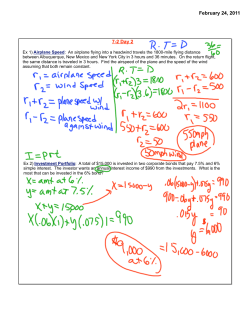 February 24, 2011
7-2 Day 2
R · T = D
36/60
Ex 1) Airplane Speed: An airplane flying into a headwind travels the 1800-mile flying distance
between Albuquerque, New Mexico and New York City in 3 hours and 36 minutes. On the return flight,
the same distance is traveled in 3 hours. Find the airspeed of the plane and the speed of the wind
assuming that both remain constant.
r₁ = airplane speed
r₂ = wind speed
r₁ + r₂ = plane speed w/ wind
r₁ - r₂ = plane speed against wind
R · T = D
(r₁+r₂)3 = 1800
(r₁-r₂)(3.6) = 1800
r₁ + r₂ = 600
r₁ - r₂ = 500
2r₁ = 1100
r₁ = 550
r₁ + r₂ = 600
550 + r₂ = 600
r₂ = 50
550mph plane
50mph wind
I = prt
Ex 2) Investment Portfolio: A total of $15,000 is invested in two corporate bonds that pay 7.5% and 6%
simple interest. The investor wants an annual interest income of $990 from the investments. What is the
most that can be invested in the 6% bond?
x = amt at 6%
y = amt at 7.5%
x + y = 15000
x(.06)(1) + y(.075)1 = 990
x = 15000 - y
.06(15000-y) + .075y = 990
900 - .06y + .075y = 990
.015y = 90
y = 6000
x = 15,000 - 6000
$9,000 at 6%